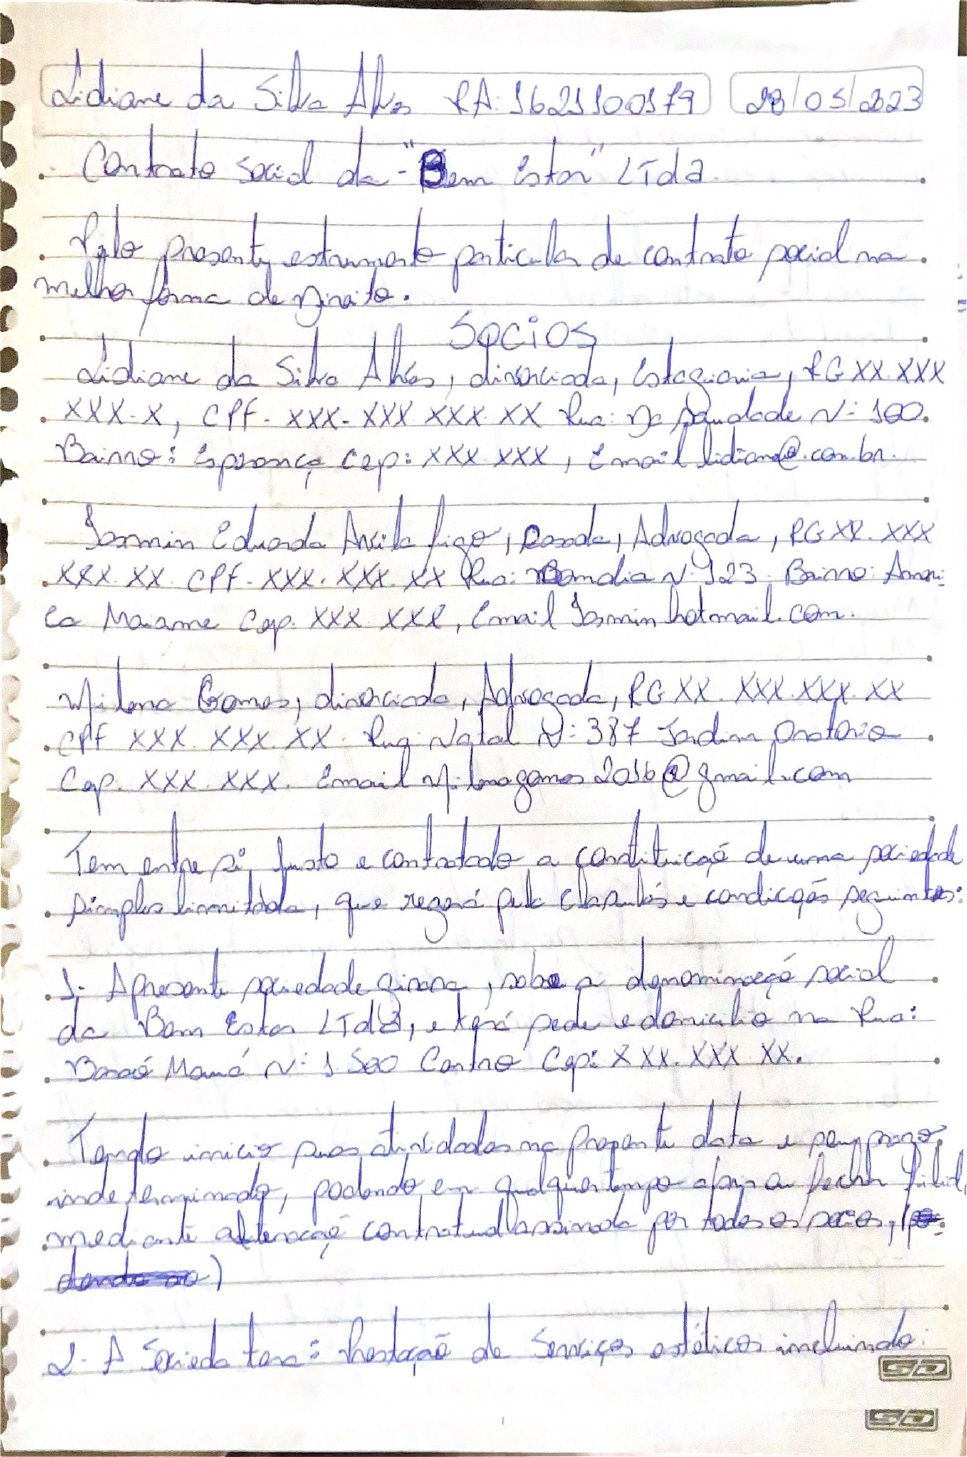 Lidiane da Silva Alves RA: 1621100179 28/05/2023
Contrato social da "Bem Estar" LTda.
Pelo presente, estrumento particular de contrato social na
melhor forma de Direito.
Socios
Lidiane da Silva Alves, divorciada, Estagiaria, RG XX.XXX
XXX-X, CPF- XXX-XXX XXX-XX Rua: Da Saudade N: 100.
Bairro: Esperança Cep: XXX XXX, Email lidiane@.com.br.
Iasmin Eduarda Avila, Casada, Advogada, RG XX. XXX
XXX XX. CPF- XXX. XXX. XX Rua: N: 123. Bairro:
Cep. XXX. XXX, Email Iasmin hotmail.com.
Milena Gomes, divorciada, Advogada, RG XX. XXX.XXX.XX
CPF XXX. XXX. XX. Rua: Natal N: 387 Jardim Oratorio
Cep. XXX. XXX. Email Milenagomes2016@gmail.com
Tem entre si, justo e contratado a constituição de uma sociedade
simples limitada, que regerá pela e condicções seguintes:
1- Apresente sociedade girara, sobe a denominação social
da Bem Estar LTda, e terá sede e domicilio na Rua:
Barão Mauá N: 1.500 Centro Cep: XXX. XXX XX.
Tendo inicio suas atividades na presente data e seu prazo,
indeterminado, podendo em qualquer tempo abrir ou fechar filial,
mediante alteração contratual assinada por todos os socios, (po-
dendo so)
2- A Socieda tera: Prestação de Serviços estéticos incluindo:
SD
SD